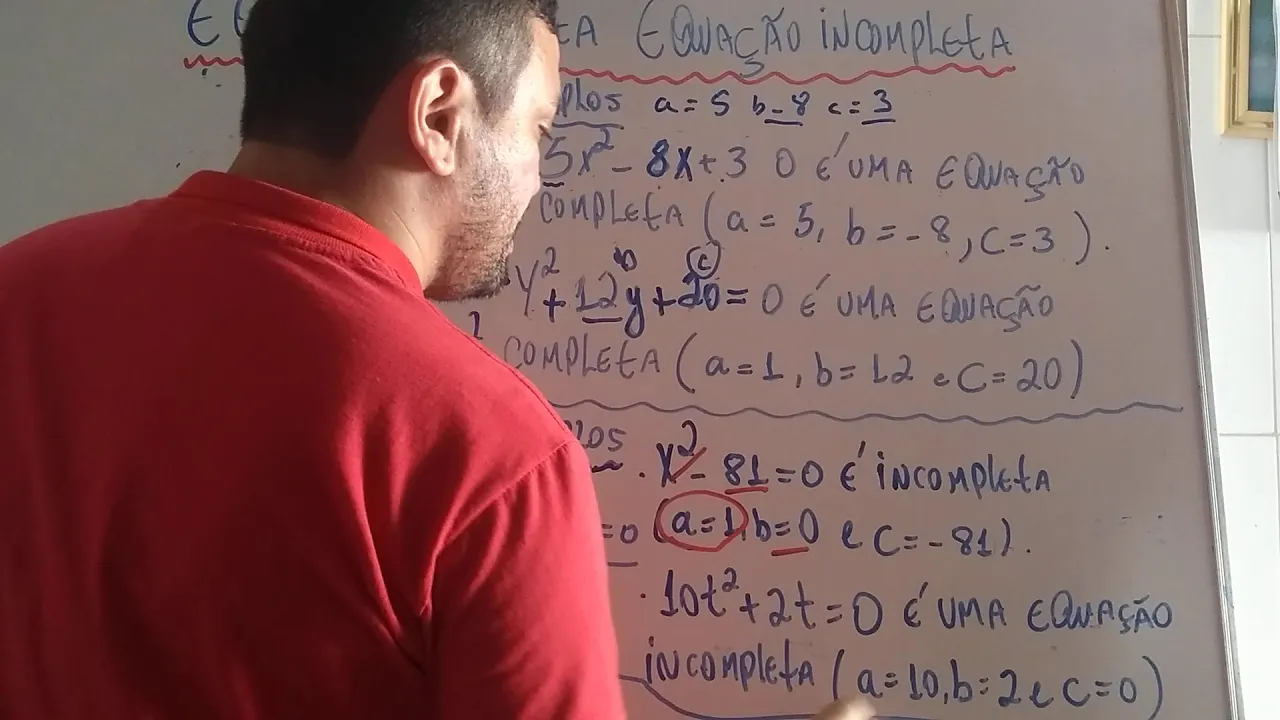 EQUAÇÃO INCOMPLETA
a = 5 b - 8 c = 3
5x² - 8x + 3 0 É UMA EQUAÇÃO
COMPLETA (a = 5, b = -8, C = 3).
b c
y² + 12y + 20 = 0 É UMA EQUAÇÃO
COMPLETA (a = 1, b = 12 e C = 20)
. x² - 81 = 0 É INCOMPLETA
= 0 (a = 1, b = 0 e C = -81).
. 10t² + 2t = 0 É UMA EQUAÇÃO
INCOMPLETA (a = 10, b = 2 e C = 0)